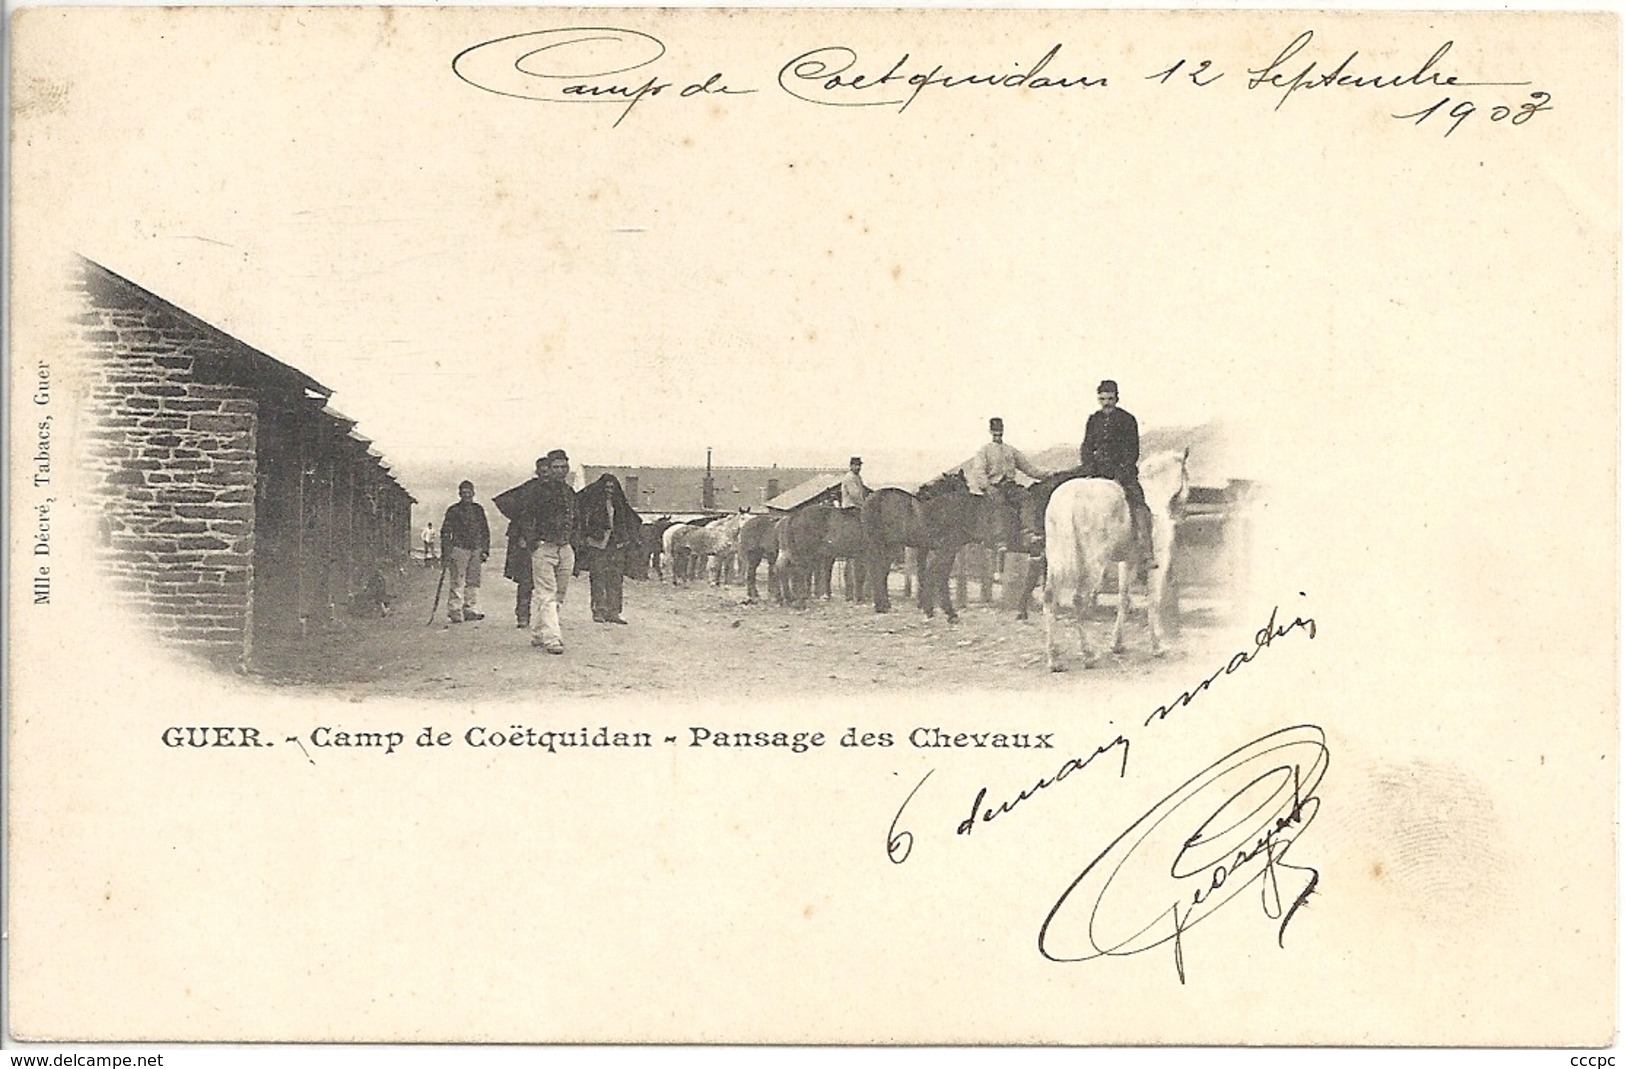 Camp de Coetquidam 12 Septembre
1903
Mlle Décré, Tabacs, Guer
GUER. - Camp de Coëtquidan - Pansage des Chevaux
6 demain matin
Georget
www.delcampe.net
cccpc